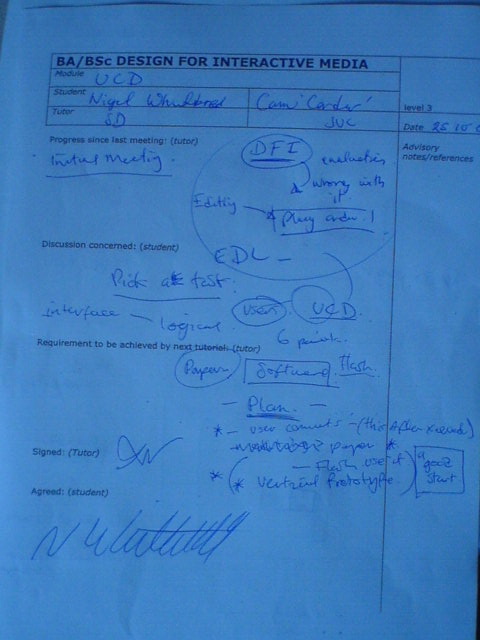 BA/BSc DESIGN FOR INTERACTIVE MEDIA
Module UCD
Student Nigel
level 3
Tutor SD JVC
Date 25 10
Progress since last meeting: (tutor)
Advisory notes/references
Initial Meeting.
DFI
evaluation
wrong with it
Editing
Discussion concerned: (student)
EDL -
Pick a task.
interface - logical
user UCD
6
Requirement to be achieved by next tutorial: (tutor)
Software. Flash
- Plan -
* - user comments - (this
paper *
Signed: (Tutor)
* ( - Flash use it
* vertical prototype )
a good start
Agreed: (student)